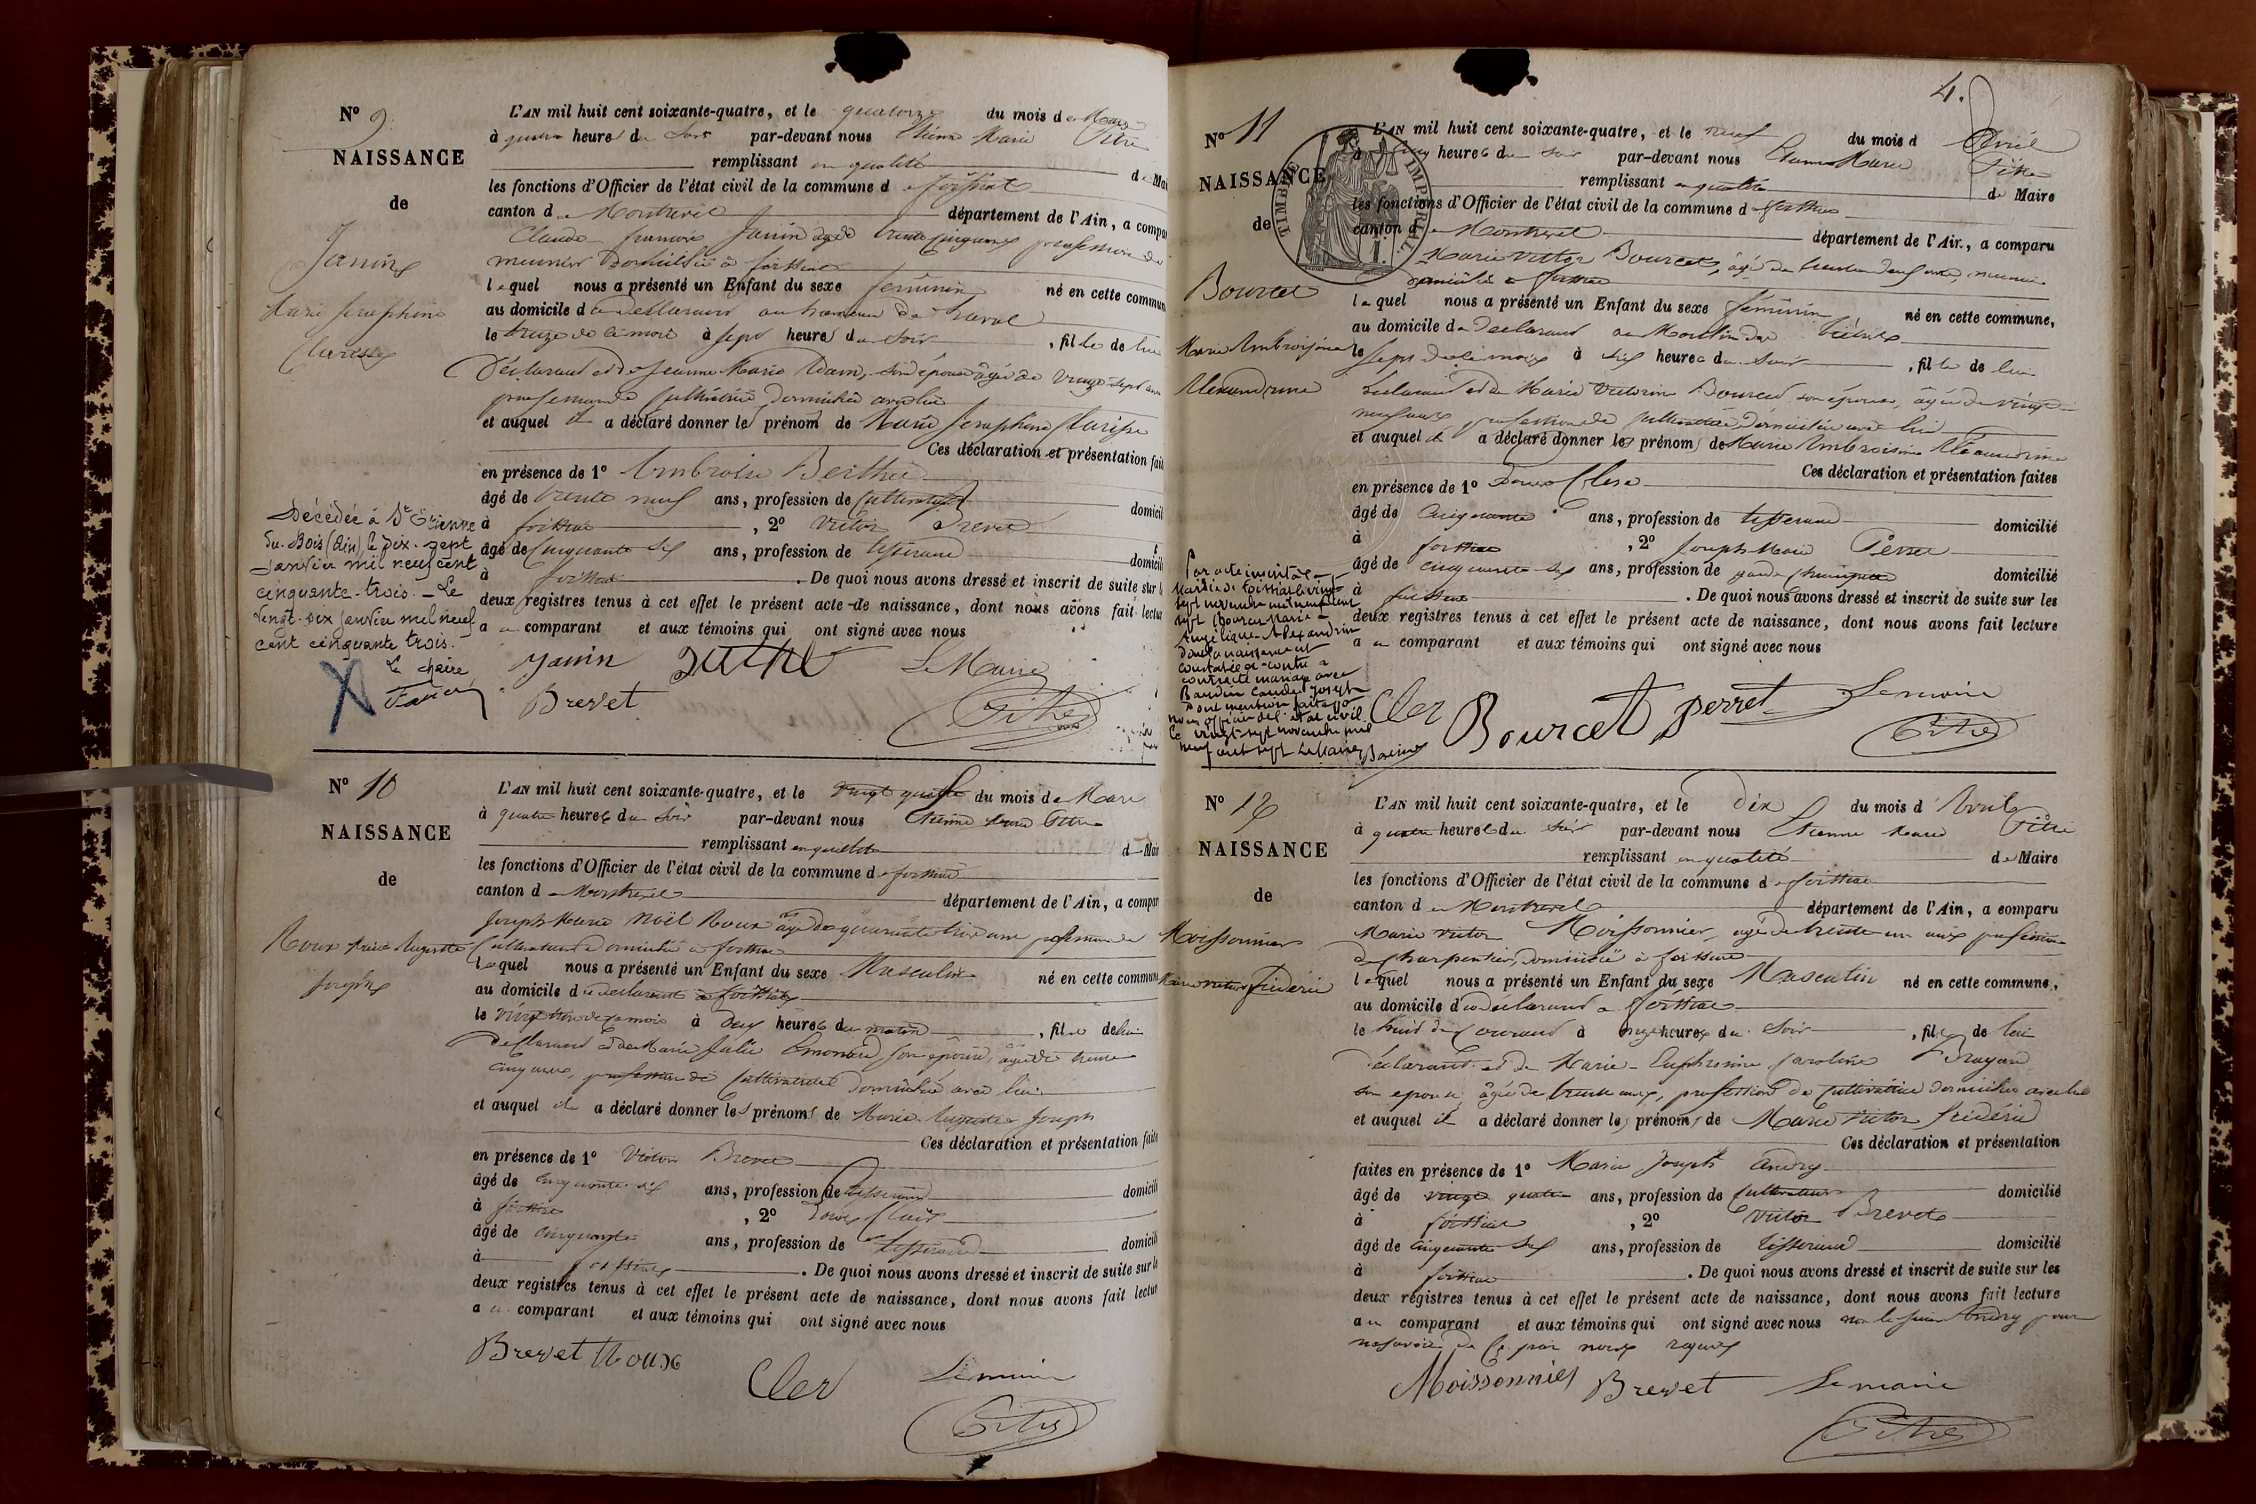 Nº 9
NAISSANCE
de
Janin
Marie Josephine
Clarisse
L'AN mil huit cent soixante-quatre, et le quatorze du mois de Mars
à quatre heures du soir par-devant nous Etienne Marie Pitre
remplissant en qualité de Mai
les fonctions d'Officier de l'état civil de la commune d
canton de Montrevel département de l'Ain, a compa
Claude françois Janin âgé de trente cinq ans profession de
meunier domicilié à
lequel nous a présenté un Enfant du sexe féminin né en cette commun
au domicile du déclarant au hameau de
le treize de ce mois à sept heures du soir, fille de lui
Déclarant et de Jeanne Marie Adam, son épouse âgée de vingt-sept ans
profession de cultivatrice, domiciliée avec lui
et auquel il a déclaré donner les prénoms de Marie Josephine Clarisse
Ces déclaration et présentation fait
en présence de 1º Ambroise Berthet
âgé de trente neuf ans, profession de cultivateur domicil
à , 2º Victor Brevet
âgé de cinquante six ans, profession de tisserand domicili
à . De quoi nous avons dressé et inscrit de suite sur l
deux registres tenus à cet effet le présent acte de naissance, dont nous avons fait lectur
au comparant et aux témoins qui ont signé avec nous
Janin Le Maire
Brevet Pitre
Décédée à St Etienne
du-Bois (Ain) le dix-sept
janvier mil neuf cent
cinquante-trois. - Le
vingt-six janvier mil neuf
cent cinquante trois.
Le Maire
Nº 10
NAISSANCE
de
Roux Marie Auguste
Joseph
L'AN mil huit cent soixante-quatre, et le vingt quatre du mois de Mars
à quatre heures du soir par-devant nous Etienne Marie Pitre
remplissant en qualité de Mair
les fonctions d'Officier de l'état civil de la commune d
canton de Montrevel département de l'Ain, a compar
Joseph Marie Noël Roux âgé de quarante trois ans profession de
Cultivateur domicilié à
lequel nous a présenté un Enfant du sexe Masculin né en cette commune
au domicile du déclarant à
le vingt trois de ce mois à deux heures du matin, fils de lui
Déclarant et de Marie Julie son épouse, âgée de trente
cinq ans, profession de cultivatrice domiciliée avec lui
et auquel il a déclaré donner les prénoms de Marie Auguste Joseph
Ces déclaration et présentation faite
en présence de 1º Victor Brevet
âgé de cinquante six ans, profession de tisserand domicili
à , 2º
âgé de cinquante ans, profession de tisserand domicili
à . De quoi nous avons dressé et inscrit de suite sur le
deux registres tenus à cet effet le présent acte de naissance, dont nous avons fait lectur
au comparant et aux témoins qui ont signé avec nous
Brevet Roux
Cler Le maire
Pitre
4.
Nº 11
NAISSANCE
de
TIMBRE IMPERIAL
Bourcet
Marie Ambroisine
Alexandrine
L'AN mil huit cent soixante-quatre, et le neuf du mois d Avril
à cinq heures du soir par-devant nous Etienne Marie Pitre
remplissant en qualité de Maire
les fonctions d'Officier de l'état civil de la commune d
canton de Montrevel département de l'Ain, a comparu
Marie Victor Bourcet, âgé de trente deux ans, meunier
domicilié à
lequel nous a présenté un Enfant du sexe féminin né en cette commune,
au domicile du déclarant au Moulin des
le sept de ce mois à six heures du soir, fille de lui
Déclarant et de Marie Victorine Bourcet son épouse, âgée de vingt-
neuf ans profession de cultivatrice domiciliée avec lui
et auquel il a déclaré donner les prénoms de Marie Ambroisine Alexandrine
Ces déclaration et présentation faites
en présence de 1º
âgé de cinquante ans, profession de tisserand domicilié
à , 2º Joseph Marie Perret
âgé de cinquante six ans, profession de garde champêtre domicilié
à . De quoi nous avons dressé et inscrit de suite sur les
deux registres tenus à cet effet le présent acte de naissance, dont nous avons fait lecture
au comparant et aux témoins qui ont signé avec nous
Cler Bourcet Perret Le maire
Pitre
Par acte inscrit à la
Mairie de le vingt
sept novembre mil neuf cent
sept Bourcet Marie-
Angélique-Alexandrine
dont la naissance est
constatée ci-contre a
contracté mariage avec
Claude Joseph
Dont mention faite par
nous officier de l'état civil
le vingt-sept novembre mil
neuf cent sept Le Maire
Nº 12
NAISSANCE
de
Moissonnier
Marie Victor Frédéric
L'AN mil huit cent soixante-quatre, et le dix du mois d'Avril
à quatre heures du soir par-devant nous Etienne Marie Pitre
remplissant en qualité de Maire
les fonctions d'Officier de l'état civil de la commune d
canton de Montrevel département de l'Ain, a comparu
Marie Victor Moissonnier, âgé de trente un ans profession
de charpentier, domicilié à
lequel nous a présenté un Enfant du sexe Masculin né en cette commune,
au domicile du déclarant à
le huit du courant à onze heures du soir, fils de lui
déclarant et de Marie-Euphrosine Caroline
son épouse, âgée de trente ans, profession de cultivatrice domiciliée avec lui
et auquel il a déclaré donner les prénoms de Marie Victor Frédéric
Ces déclaration et présentation
faites en présence de 1º Marie Joseph Andry
âgé de vingt quatre ans, profession de cultivateur domicilié
à , 2º Victor Brevet
âgé de cinquante six ans, profession de tisserand domicilié
à . De quoi nous avons dressé et inscrit de suite sur les
deux registres tenus à cet effet le présent acte de naissance, dont nous avons fait lecture
au comparant et aux témoins qui ont signé avec nous non le sieur Andry pour
ne savoir de ce par nous requis
Moissonnier Brevet Le maire
Pitre